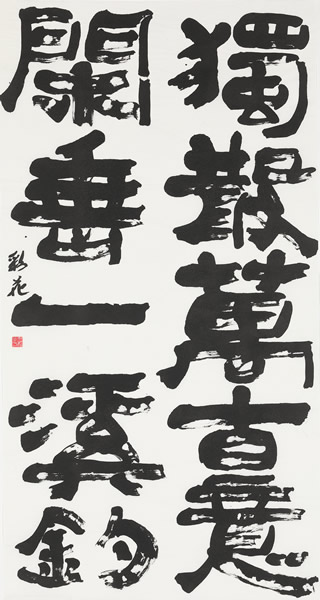 獨散萬古意
閑垂一溪釣
彩花